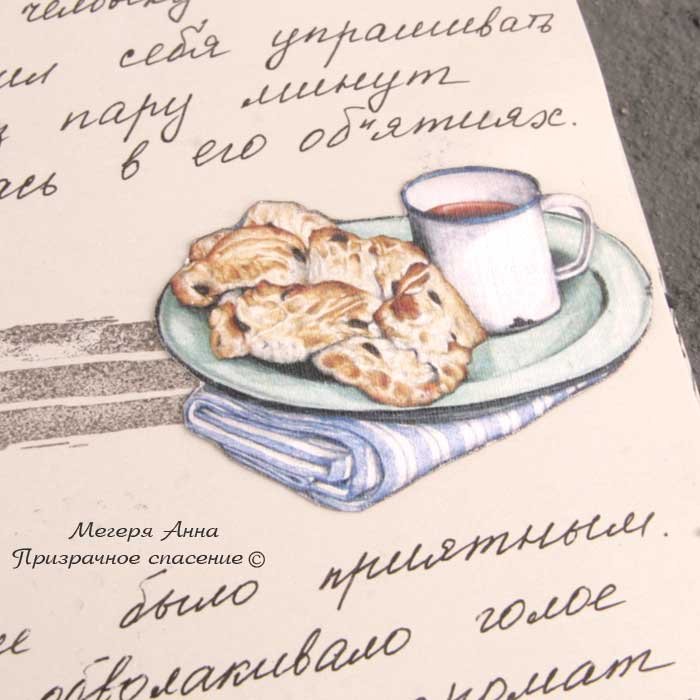 человеку
себя упрашивать
пару минут
в его объятиях.
Мегеря Анна
Призрачное спасение ©
было приятным.
обволакивало голое